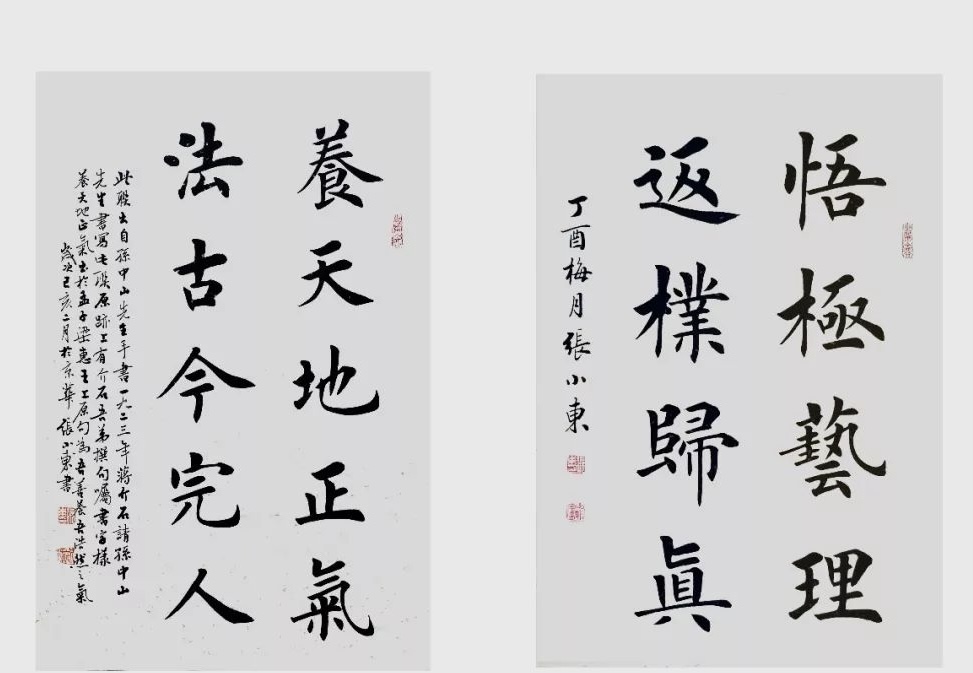 悟極藝理
返樸歸眞
丁酉梅月張小東
養天地正氣
法古今完人
此聯出自孫中山先生手書一九二三年蔣介石請孫中山
先生書寫此聯原跡上有介石吾弟撰句囑書字樣
養天地正氣出於孟子梁惠王上原句為吾善養吾浩然之氣
歲次己亥二月於京華張小東書